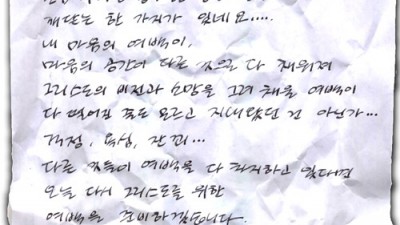 깨닫는 한 가지가 있네요.....
내 마음의 여백이,
마음의 공간이 다른 것으로 다 채워져
그리스도의 비전과 소망을 그려 채울 여백이
다 없어진 줄도 모르고 지내왔던 건 아닌가...
걱정, 욕심, 잔꾀...
다른 것들이 여백을 다 차지하고 있다면
오늘 다시 그리스도를 위한
여백을 준비하겠습니다.